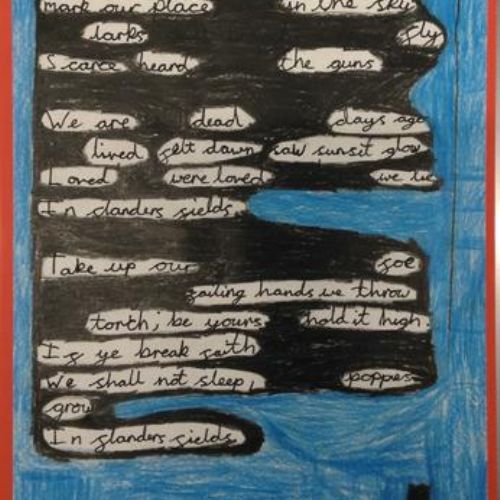 mark our place in the sky
larks fly
Scarce heard the guns
We are dead days ago
lived felt dawn saw sunsit glow
Loved were loved we lie
In flanders fields
Take up our foe
failing hands we throw
torth; be yours hold it high.
If ye break faith
We shall not sleep, poppies
grow
In flanders fields